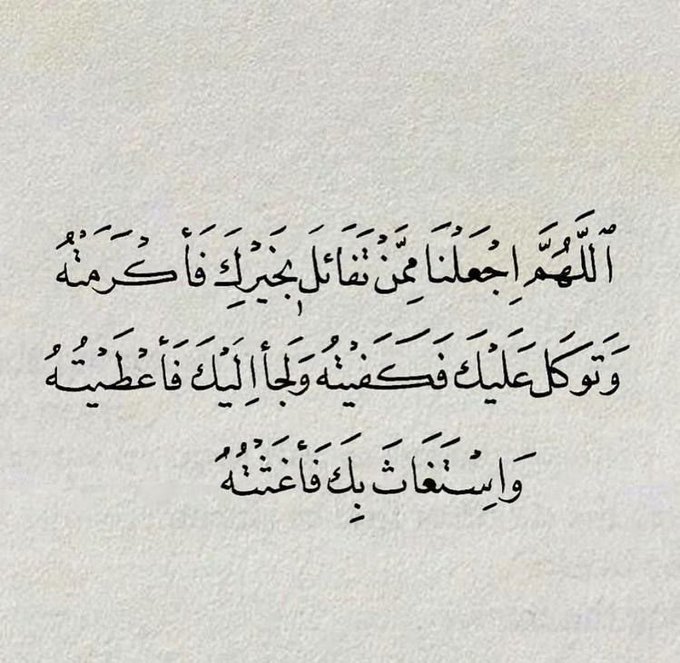 ٱللَّهُمَّ اِجْعَلْنَا مِمَّنْ تَفَائَلَ بِخَيْرِكِ فَأَكْرَمَتْهُ
وَتَوَكَل عَلَيْكَ فَكَفَيْتْهُ وَلَجأ اِلَيْكَ فَأعْطَيْتُهُ
وَاِسْتَغَاثَ بِكَ فَأغَثْتُهُ